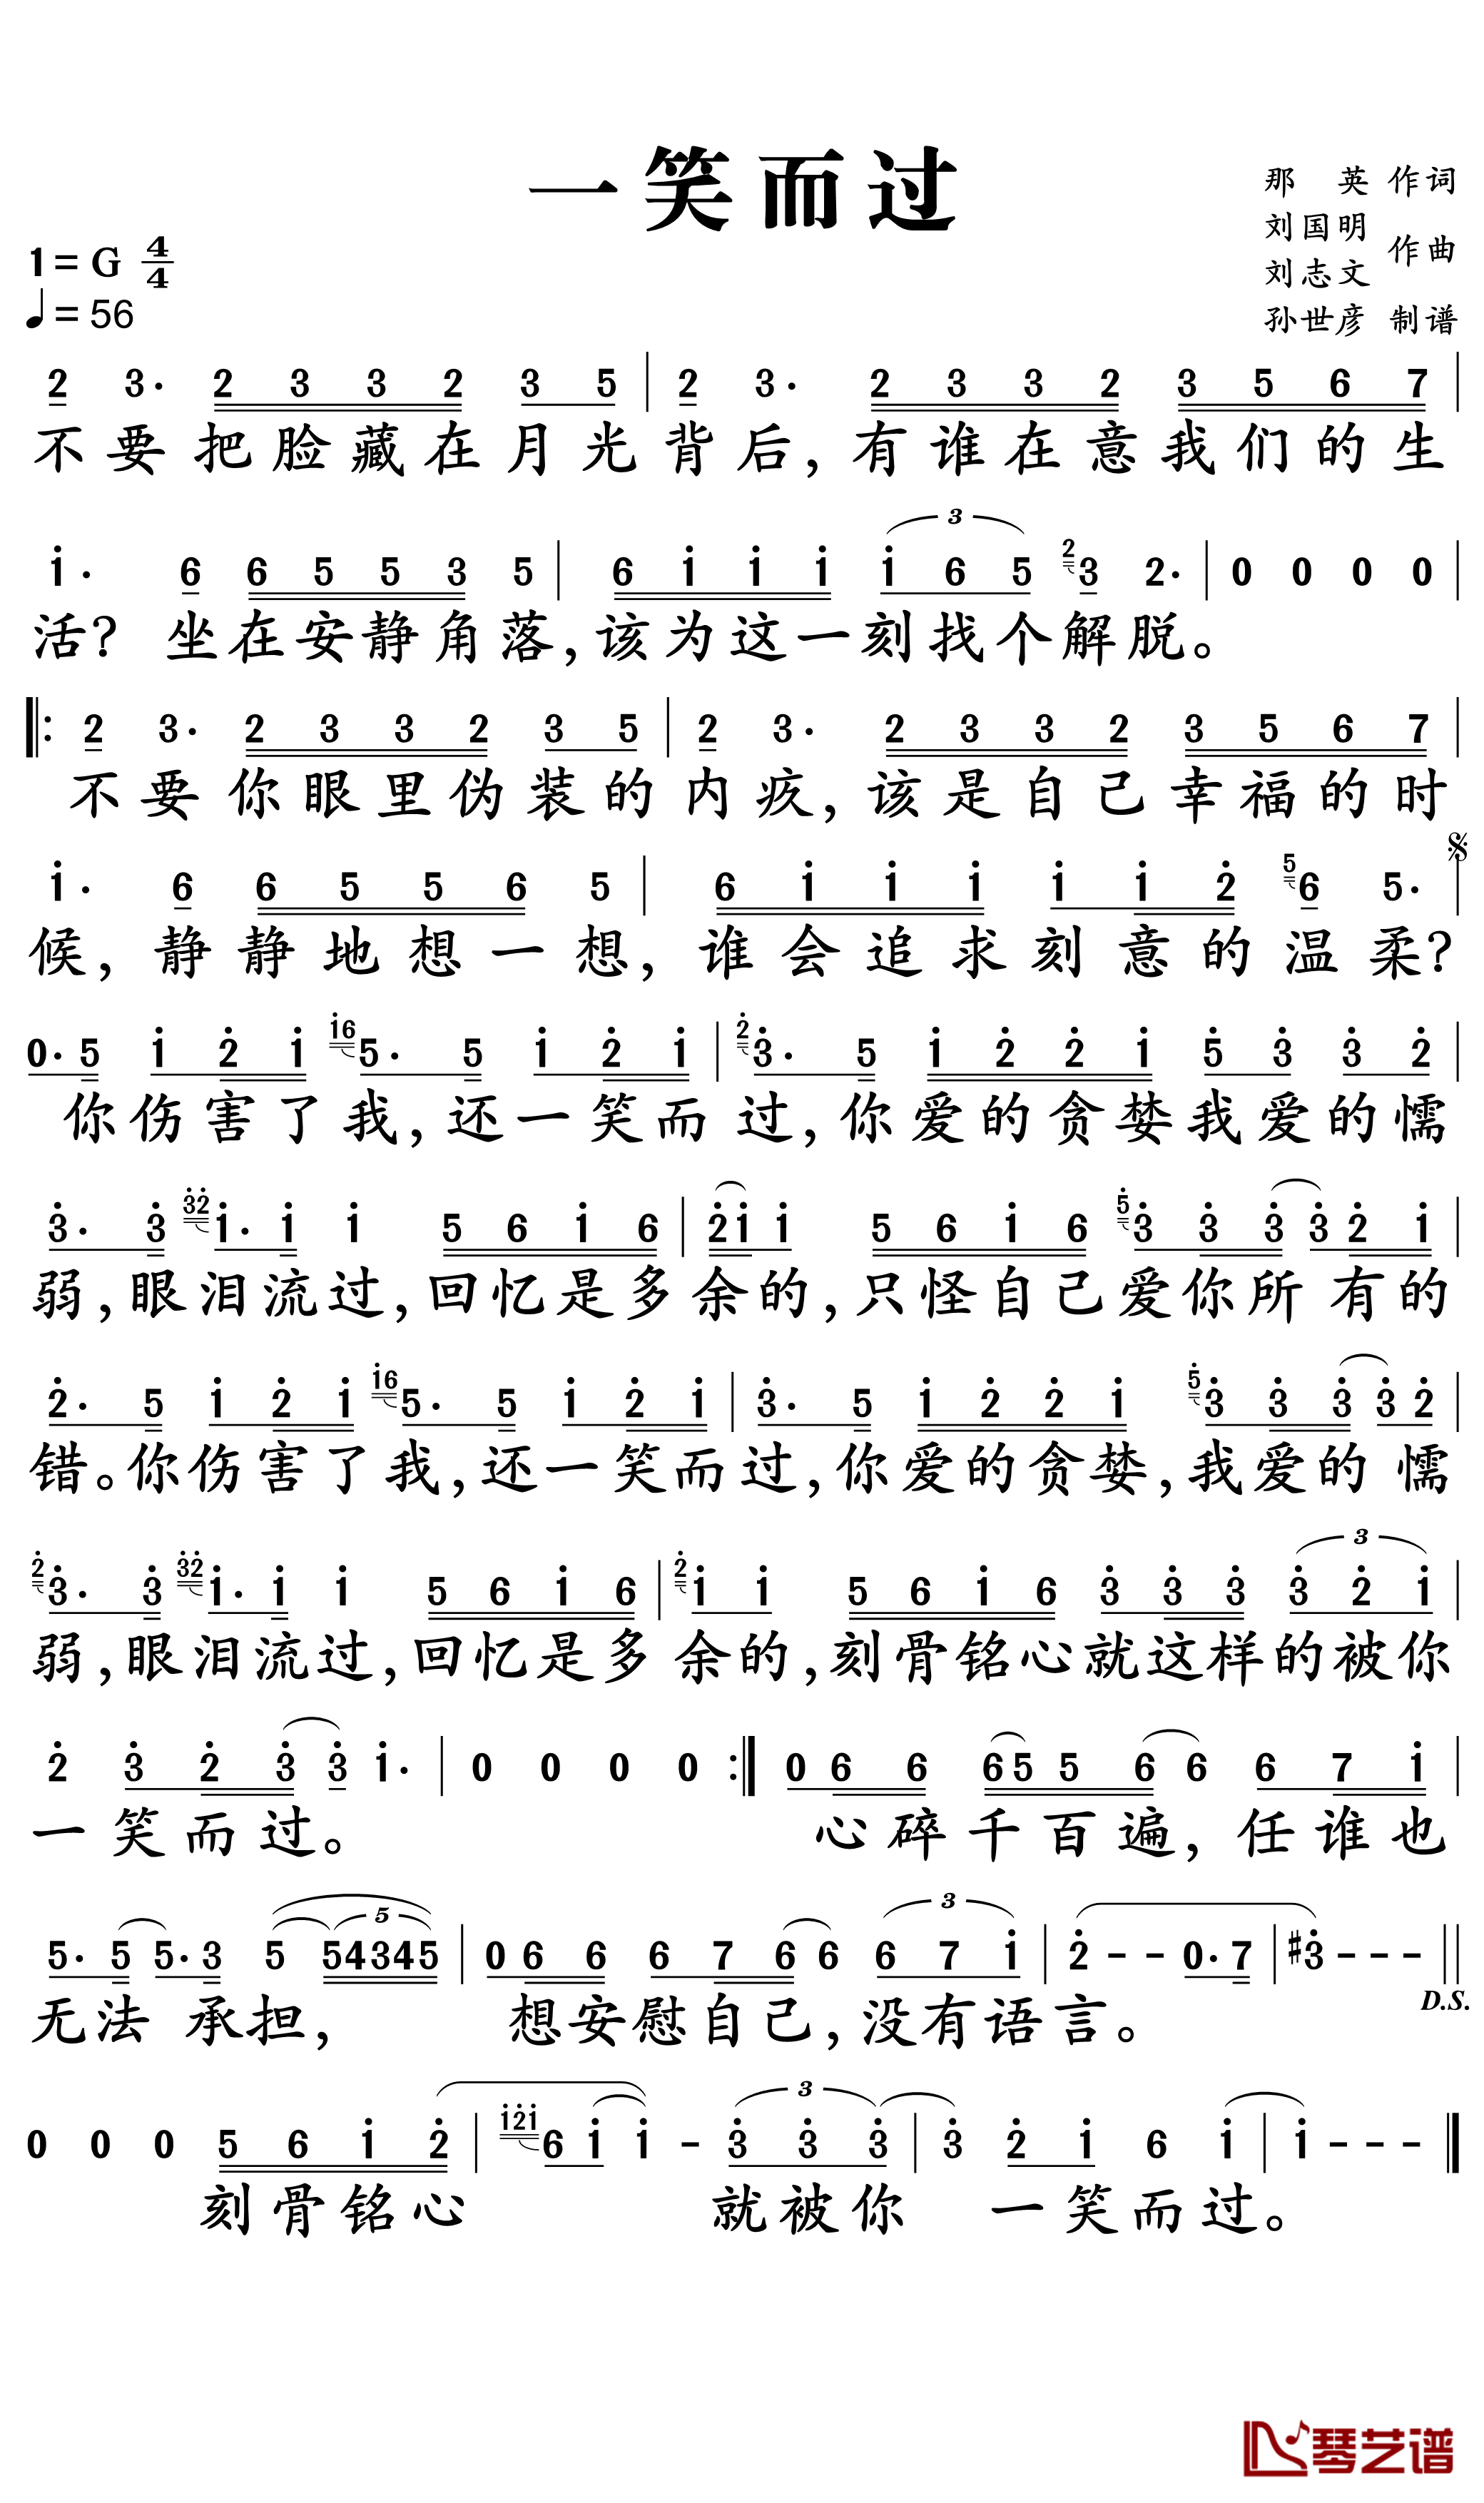 一笑而过
那 英 作词
刘国明
刘志文 作曲
孙世彦 制谱
1=G 4/4
♩=56
2 3· 2 3 3 2 3 5 | 2 3· 2 3 3 2 3 5 6 7 |
不要把脸藏在月光背后，有谁在意我们的生
3
i· 6 6 5 5 3 5 | 6 i i i i 6 5 2 3 2· | 0 0 0 0 |
活？坐在安静角落，该为这一刻找个解脱。
‖: 2 3· 2 3 3 2 3 5 | 2 3· 2 3 3 2 3 5 6 7 |
不要你眼里伪装的内疚，该是自己幸福的时
i· 6 6 5 5 6 5 | 6 i i i i i 2̇ 5 6 5· |
候，静静地想一想，谁会追求刻意的温柔？
0· 5 i 2̇ i i6 5· 5 i 2̇ i | 2̇ 3̇· 5 i 2̇ 2̇ i 5̇ 3̇ 3̇ 2̇ |
你伤害了我，还一笑而过，你爱的贪婪我爱的懦
3̇· 3̇ 3̇2̇ i· i i 5 6 i 6 | 2̇ i i 5 6 i 6 5̇ 3̇ 3̇ 3̇ 3̇ 2̇ i |
弱，眼泪流过，回忆是多余的，只怪自己爱你所有的
2̇· 5 i 2̇ i i6 5· 5 i 2̇ i | 3̇· 5 i 2̇ 2̇ i 5̇ 3̇ 3̇ 3̇ 3̇ 2̇ |
错。你伤害了我，还一笑而过，你爱的贪婪，我爱的懦
3
2̇ 3̇· 3̇ 3̇2̇ i· i i 5 6 i 6 | 2̇ i i 5 6 i 6 3̇ 3̇ 3̇ 3̇ 2̇ i |
弱，眼泪流过，回忆是多余的，刻骨铭心就这样的被你
2̇ 3̇ 2̇ 3̇ 3̇ i· | 0 0 0 0 :‖ 0 6 6 6 5 5 6 6 6 7 i |
一笑而过。 心碎千百遍，任谁也
5 3
5· 5 5· 3 5 5 4 3 4 5 | 0 6 6 6 7 6 6 6 7 i | 2̇ - - 0· 7 | #3̇ - - - ‖
无法承担， 想安慰自己，没有语言。 D.S.
3
0 0 0 5 6 i 2̇ | i2̇i 6 i i - 3̇ 3̇ 3̇ | 3̇ 2̇ i 6 i | i - - - ‖
刻骨铭心 就被你 一笑而过。
琴艺谱